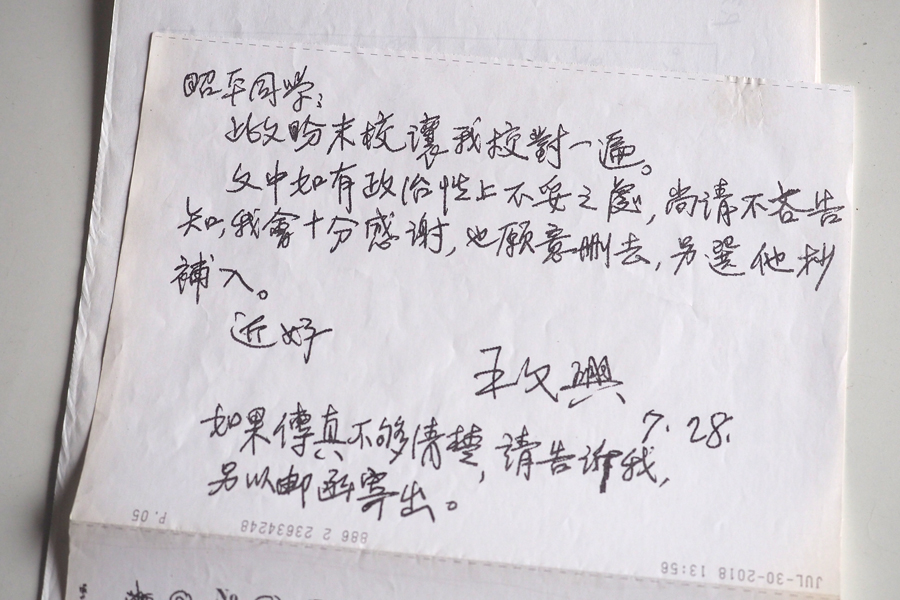 昭平同学：
此文盼末校讓我校對一遍。
文中如有政治性上不妥之處，尚請不吝告
知，我會十分感谢，也願意删去，另選他抄
補入。
近好
王文興
7. 28.
如果傳真不够清楚，請告訴我，
另以邮函寄出。
P.05
886 2 23634248
JUL-30-2018 13:56